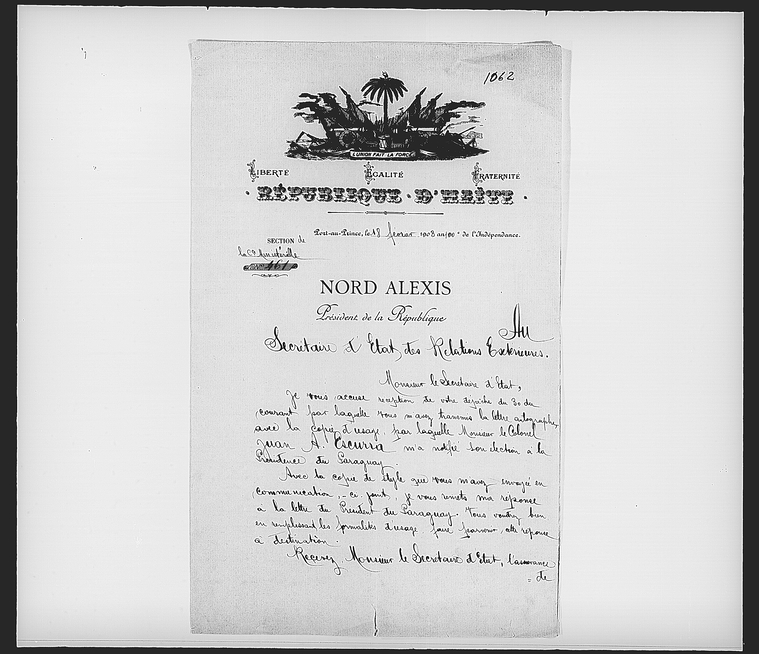 1062
L'UNION FAIT LA FORCE
LIBERTÉ EGALITÉ FRATERNITÉ
RÉPUBLIQUE D'HAÏTI
Port-au-Prince, le 18 février 1903 an 100e de l'Indépendance.
SECTION de
la Cce Ministérielle
461
NORD ALEXIS
Président de la République
Au
Secrétaire d'Etat des Relations Extérieures.
Monsieur le Secrétaire d'Etat,
Je vous accuse réception de votre dépêche du 30 du
courant par laquelle vous m'avez transmis la lettre autographe
avec la copie d'usage, par laquelle Monsieur le Colonel
Juan A. Escurra m'a notifié son élection à la
Présidence du Paraguay.
Avec la copie de style que vous m'avez envoyée en
communication, ci-joint, je vous remets ma réponse
à la lettre du Président du Paraguay. Vous voudrez bien
en remplissant les formalités d'usage, faire parvenir cette réponse
à destination.
Recevez, Monsieur le Secrétaire d'Etat, l'assurance
de